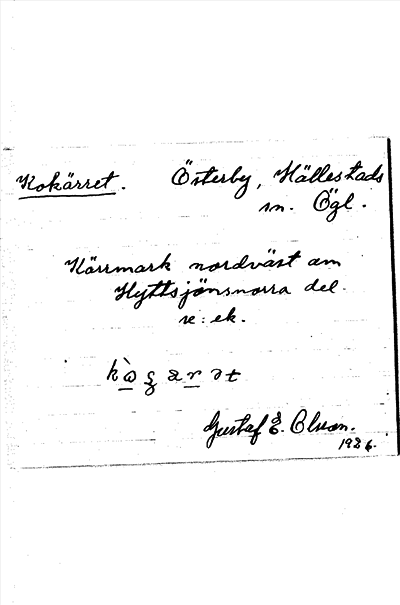 Kokärret. Österby, Hällestads
sn. Ögl.
Kärrmark nordväst om
Hyttsjönsnorra del.
re: ek.
Gustaf E. Olsson.
1926.